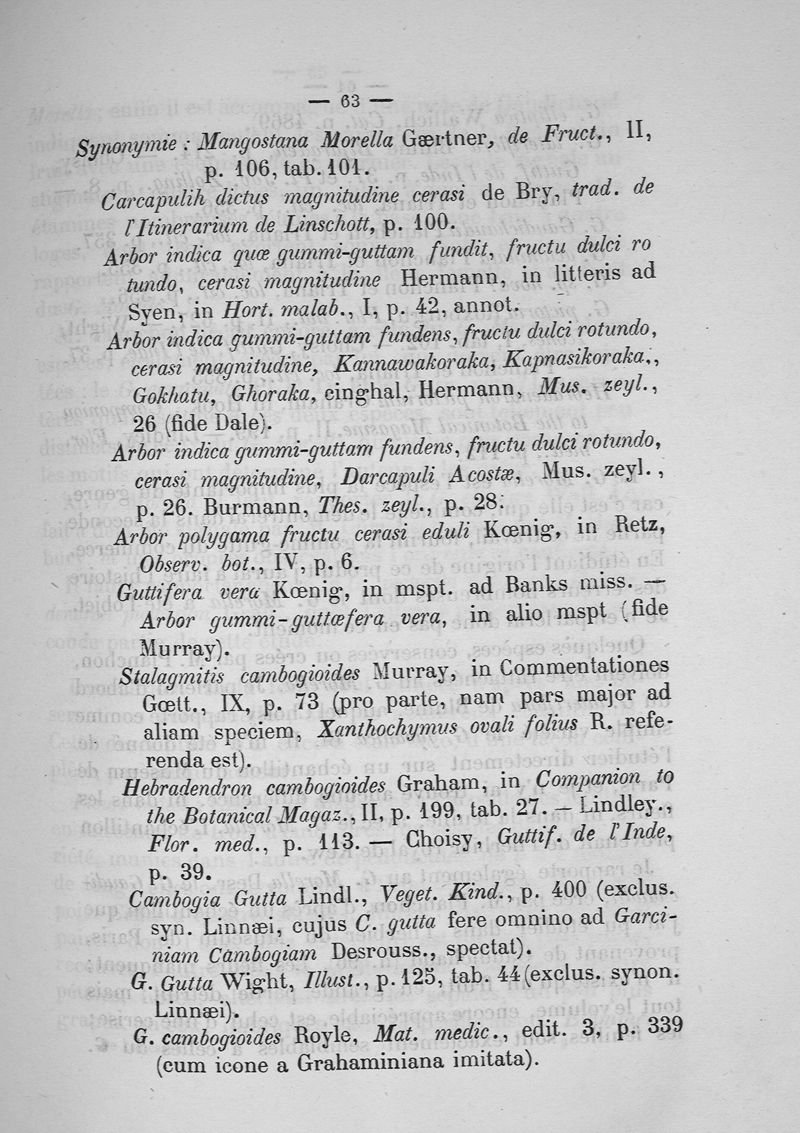 — 63 —
Synonymie : Mangostana Morella Gærtner, de Fruct., II,
p. 106, tab. 101.
Carcapulih dictus magnitudine cerasi de Bry, trad. de
l'Itinerarium de Linschott, p. 100.
Arbor indica quæ gummi-guttam fundit, fructu dulci ro
tundo, cerasi magnitudine Hermann, in litteris ad
Syen, in Hort. malab., I, p. 42, annot.
Arbor indica gummi-guttam fundens, fructu dulci rotundo,
cerasi magnitudine, Kannawakoraka, Kapnasikoraka.,
Gokhatu, Ghoraka, cinghal, Hermann, Mus. zeyl.,
26 (fide Dale).
Arbor indica gummi-guttam fundens, fructu dulci rotundo,
cerasi magnitudine, Darcapuli Acostæ, Mus. zeyl.,
p. 26. Burmann, Thes. zeyl., p. 28.
Arbor polygama fructu cerasi eduli Kœnig, in Retz,
Observ. bot., IV, p. 6.
Guttifera vera Kœnig, in mspt. ad Banks miss. —
Arbor gummi-guttæfera vera, in alio mspt (fide
Murray).
Stalagmitis cambogioides Murray, in Commentationes
Gœtt., IX, p. 73 (pro parte, nam pars major ad
aliam speciem, Xanthochymus ovali folius R. refe-
renda est).
Hebradendron cambogioides Graham, in Companion to
the Botanical Magaz., II, p. 199, tab. 27. — Lindley.,
Flor. med., p. 113. — Choisy, Guttif. de l'Inde,
p. 39.
Cambogia Gutta Lindl., Veget. Kind., p. 400 (exclus.
syn. Linnæi, cujus C. gutta fere omnino ad Garci-
niam Cambogiam Desrouss., spectat).
G. Gutta Wight, Illust., p. 125, tab. 44 (exclus. synon.
Linnæi).
G. cambogioides Royle, Mat. medic., edit. 3, p. 339
(cum icone a Grahaminiana imitata).